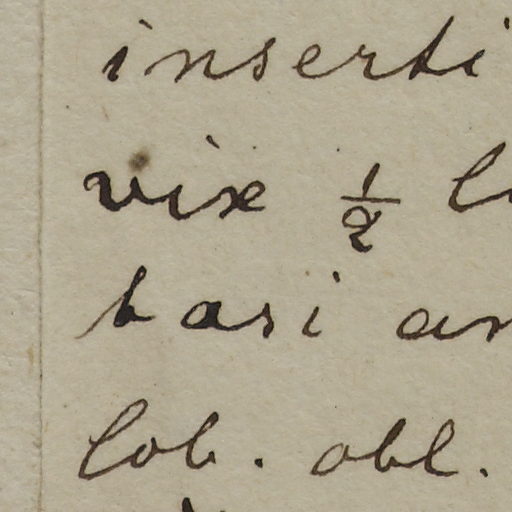 inserti
vix ½
basi
lob. obl.